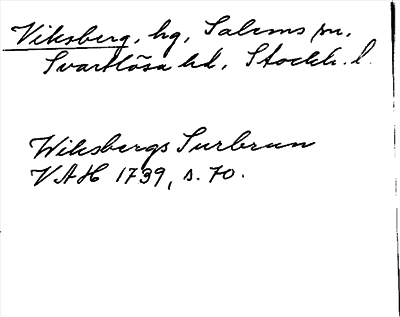 Viksberg, hg, Salems sn,
Svartlösa hd, Stockh. l.
Wiksbergs Surbrun
VAH 1739, s. 70.